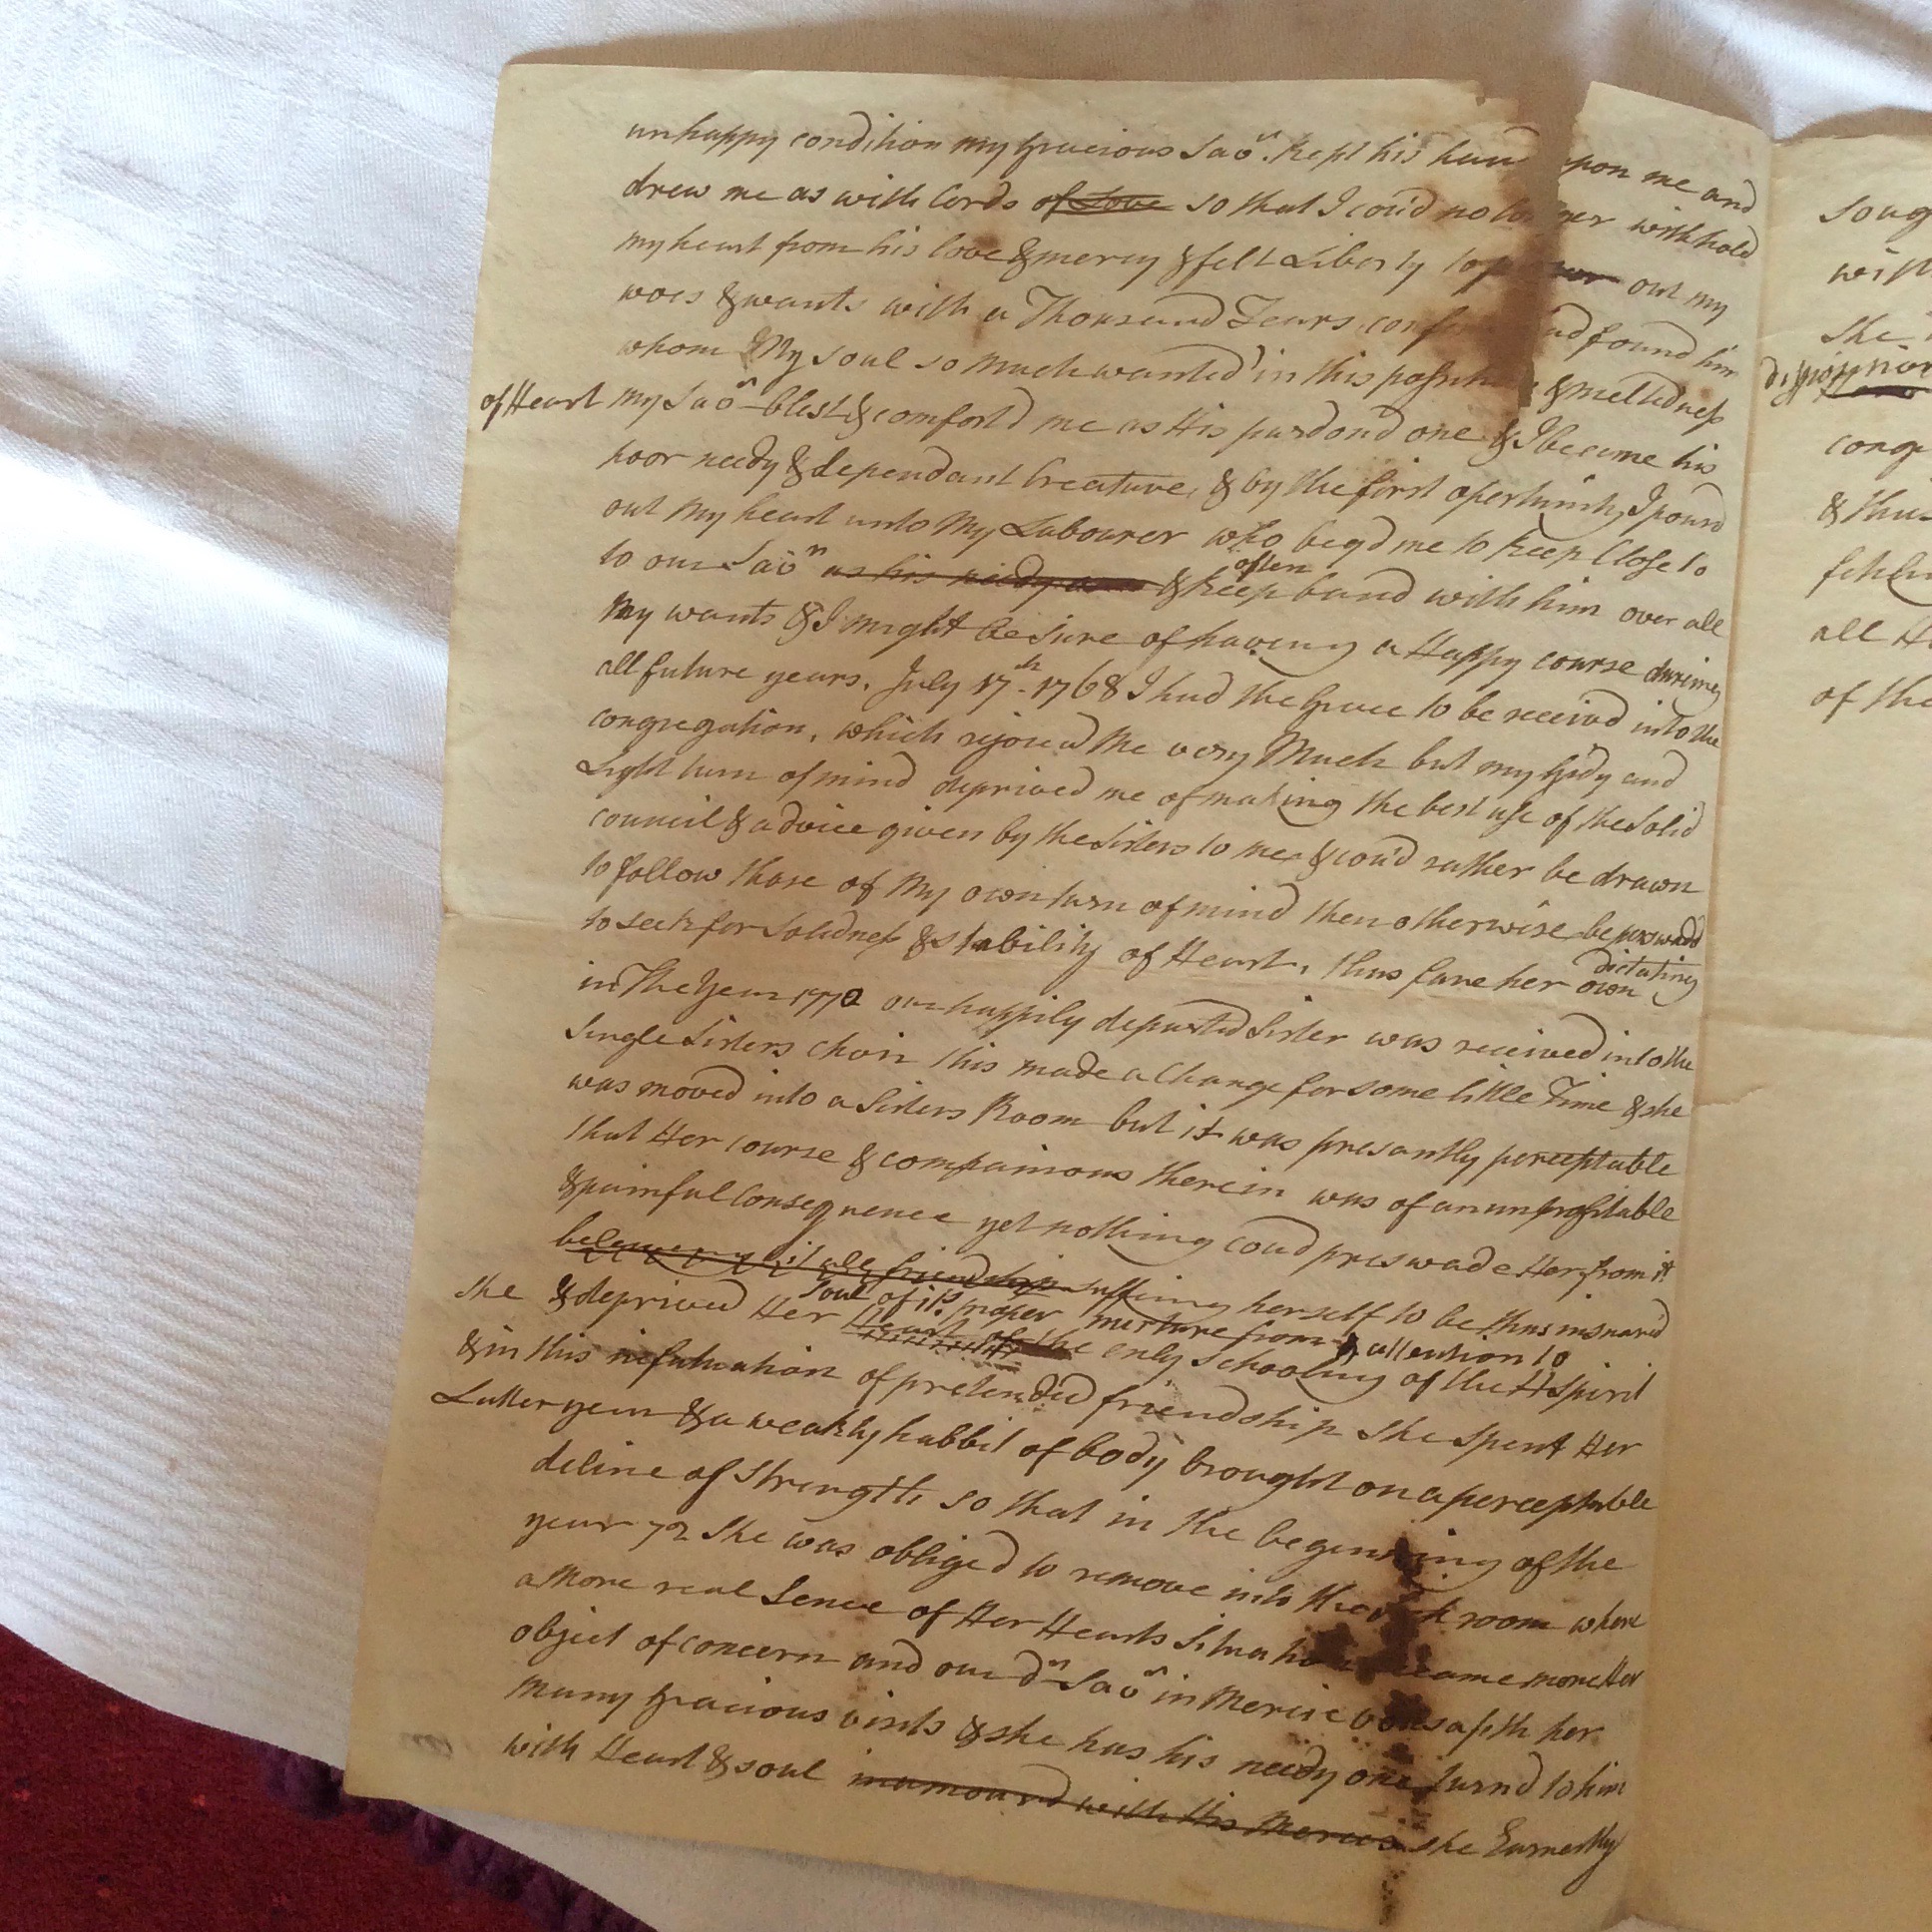 unhappy condition my Gracious Saōr. kept his hand upon me and
drew me as with Cords of Love so that I coud no longer withhold
my heart from his love & mercy & felt Liberty to out my
woes & wants with a Thousand Tears and found him
whom My soul so much wanted in this & meltedness
of Heart my Saōr blest & comforted me as His pardond one & I became his
poor needy & dependant Creature, & by the first opertunity I pourd
out my heart unto My Labourer who begd me to keep Close to
to our Saōr as his needy & keep often band with him over all
My wants & I might be sure of having a Happy course during
all future years, July 17th 1768 I had the Grace to be receivd into the
congregation, which rejoiced me very Much but my Gidy and
Light turn of mind deprived me of making the best use of the Solid
council & advice given by the Sisters to me & coud rather be drawn
to follow those of My own turn of mind then otherwise be perswadd
to seek for Solidness & stability of Heart, thus fare her own dictating
in The Year 1770 our happily departed Sister was received into the
Single Sisters choir this made a change for some little Time & she
was moved into a Sisters Room but it was presantly perceptable
that Her course & companions therein was of an unprofitable
& painful Consequence yet nothing coud preswade Her from it
it all friendship suffering herself to be thus insnared
she & deprived Her soul of its proper nurture from & attention to
Heart of the only schooling of the H Spirit
& in this infatuation of pretended friendship she spent Her
Latter year & a weakly habbit of body brought on a perceptable
decline of Strength so that in the beginning of the
year 72 She was obliged to remove into the sick room where
a More real Sence of Her Hearts Situation became more Her
object of concern and our dr Saōr in Mercie vousafeth her
many Gracious visits & she has his needy one turnd to him
with Heart & soul inamourd with His Mercies she Earnestly
soug
with
she
cong
& thus
feelin
all H
of the